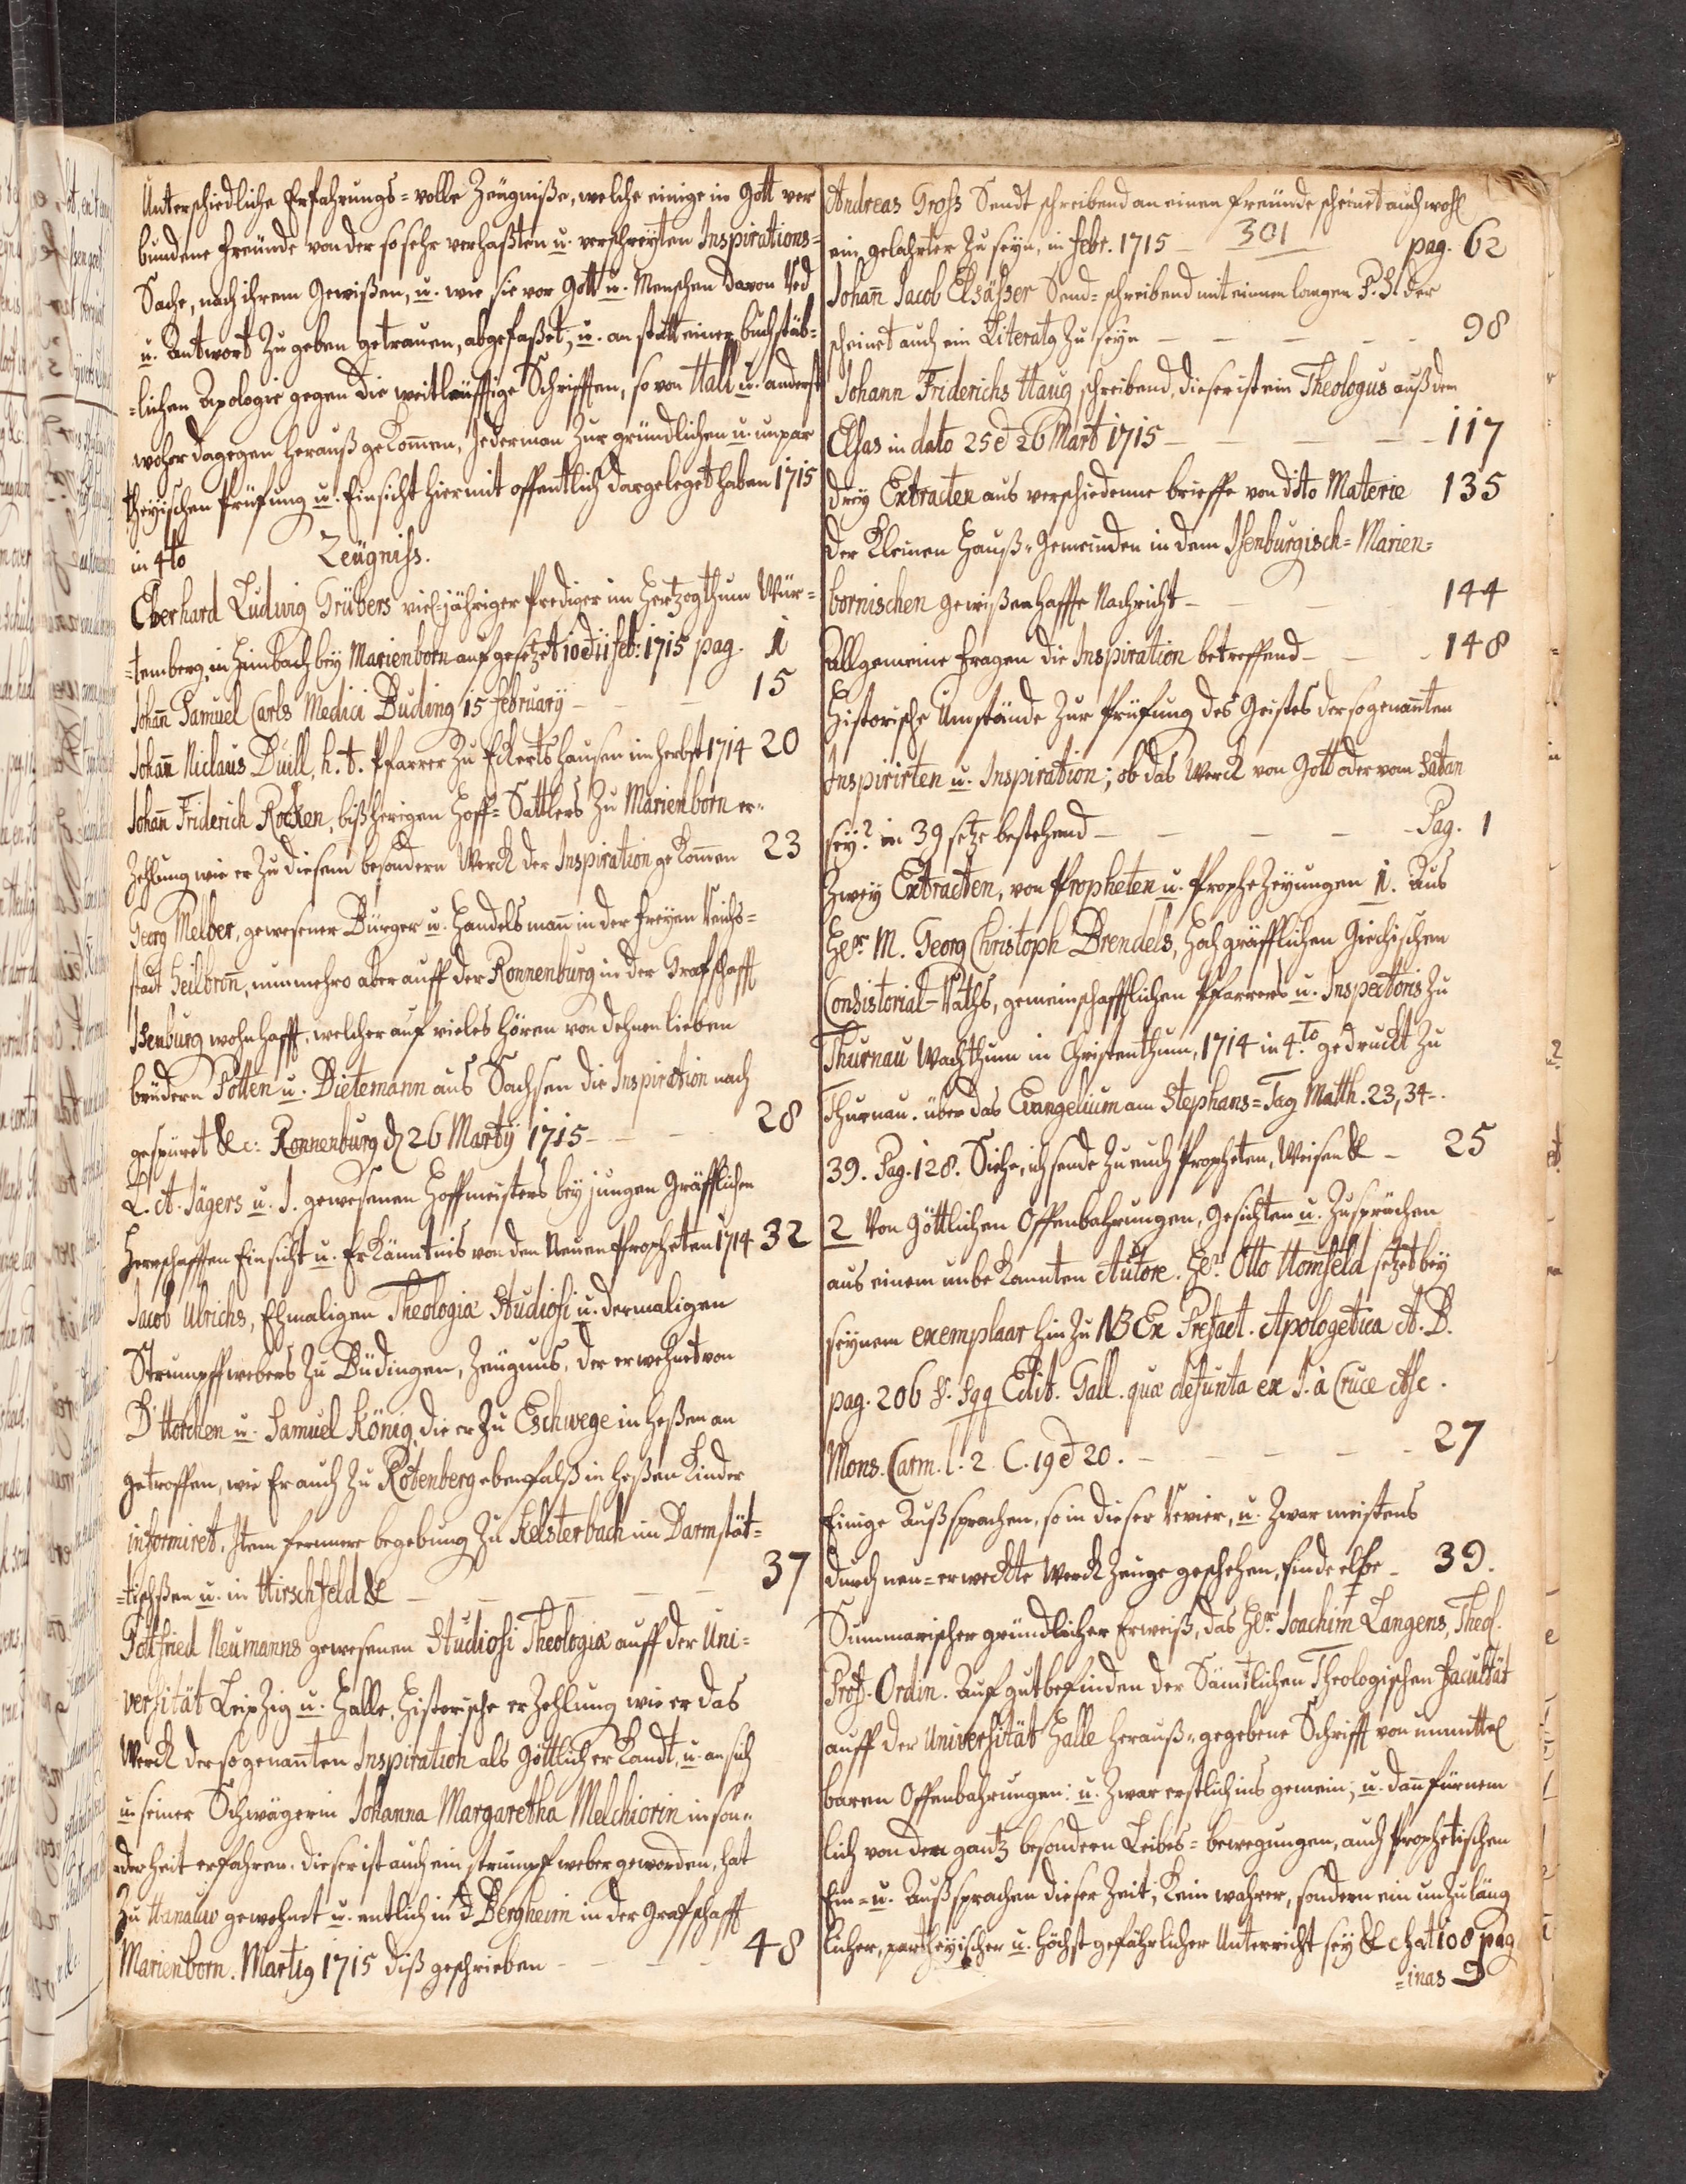 Unterschiedliche Erfahrungs=volle Zeugniße, welche einige in Gott ver
bundene Freunde von der so sehr verhaßten u. verschreyten Inspirations=
Sache, nach ihrem Gewißen, u. wie sie vor Gott u. Menschen davon Red
u. Antwort zu geben getrauen, abgefaßet, u. an statt einer buchstäb=
=lichen Apologie gegen die weitläuffige Schrifften, so von Hall u. anderst
woher dagegen herauß gekommen, Jederman zur gründlichen u. unpar
theyischen Prüfung u. Einsicht hiermit offentlich dargeleget haben 1715
in 4to Zeügniss.
Eberhard Ludwig Grübers viel=jähriger Prediger im Hertzogthum Wür=
=temberg, in Himbach bey Marienborn aufgesetzet 10 et 11 feb: 1715 pag. 1
Johañ Samuel Carls Medici Buding 15 february - - - 15
Johañ Niclaus Duill, h. t. Pfarrer zu Eckertshausen im herbst 1714 20
Johañ Friderich Rocken, bißherigen Hoff=Sattlers zu Marienborn er=
zehlung wie er zu diesem besondern Werck der Inspiration gekomen 23
Georg Melber, gewesener Bürger u. Handelsmañ in der freyen Reichs=
stadt Heilbroñ, nunmehro aber auff der Ronnenburg in der Grafschafft
Isenburg wohnhafft, welcher auf vieles hören von dehnen lieben
brüdern Potten u. Dietemann aus Sachsen die Inspiration nach
gespüret &c: Ronnenburg d 26 Martÿ 1715 - - - 28
L. A. Jägers u. J. gewesenen Hoffmeisters bey jungen Gräfflichen
Herrschafften Einsicht u. Erkäntnis von den Neuen Propheten 1714 32
Jacob Ulrichs, Ehmaligen Theologiæ Studiosi u. dermaligen
Strumpffwebers zu Büdingen, Zeugnus, der erwehnet von
D Horchen u. Samuel König, die er zu Eschwege in Heßen an
getroffen, wie Er auch zu Rotenberg ebenfalß in Heßen Kinder
informiret, Item fernere begebung zu Kelsterbach im Darmstät=
=tischen u. in Hirschfeld & - - - 37
Gottfried Neumanns gewesenen Studiosi Theologiæ auff der Uni=
versität Leipzig u. Halle, Historische erzehlung wie er das
Werck der sogenañten Inspiration als göttlich erkandt, u. an sich
u. seiner Schwägerin Johanna Margaretha Melchiorin in son=
=derheit erfahren. dieser ist auch ein strumpfweber geworden, hat
zu Hanauw gewohnet u. entlich in d Bergheim in der Grafschafft
Marienborn. Martig 1715 diß geschrieben - - - 48
Andreas Gross Sendt schreibend an einen freunde scheinet auch wohl
ein gelahrter zu seyn, in febr. 1715 - 301 pag. 62
Johañ Jacob Elsässer Send=schreibend mit einem langen P. S. der
scheinet auch ein Literatg zu seyn - - - 98
Johann Friderichs Haug schreibend, dieser ist ein Theologus auß dem
Elsas in dato 25 et 26 Mart 1715 - - - 117
drey Extracten aus verschiedenne brieffe von dito Materie 135
der Kleinen Hauß=Gemeinden in dem Isenburgisch=Marien=
bornischen gewißenhaffte Nachricht - - 144
Allgemeine Fragen die Inspiration betreffend - - 148
Historische Umstände zur Prüfung des Geistes der sogenañten
Inspirirten u. Inspiration; ob das Werck von Gott oder vom Satan
sey? in 39 setze bestehend - - - Pag. 1
Zwey Extracten, von Propheten u. Prophezeyungen 1. Aus
Her M. Georg Christoph Brendels, Hochgräfflichen Giechischen
Consistorial-Raths, gemeinschafftlichen Pfarrers u. Inspectoris zu
Thurnau Wachthum im Christenthum, 1714 in 4to gedruckt zu
Thurnau. über das Evangelium am Stephans=Tag Matth. 23, 34-.
39. Pag. 128. Siehe, ich sende zu euch Propheten, Weisen & - 25
2 Von Göttlichen Offenbahrungen, Gesichten u. Zusprächen
aus einem unbekannten Autore. Her Otto Homfeld setzet bey
seynem exemplaar hinzu NB Ex Prefact. Apologetica A. B.
pag. 206 §. sqq Edit. Gall. quæ desunta ex J. à Cruce Asc.
Mons. Carm. l. 2 C. 19 et 20. - - - 27
Einige Außsprachen, so in dieser Revier, u. zwar meistens
durch neu=erweckte Werckzeuge geschehen, sinde elfe - 39.
Summarischer gründlicher Erweiß, das Her Joachim Langens, Theol.
Prof. Ordin. Auf gutbefinden der Sämtlichen Theologischen Facultät
auff der Universität Halle herauß=gegebene Schrifft von unmittel
baren Offenbahrungen: u. zwar erstlich ins gemein; u. dañ fürnem
lich von den gantz besondern Leibes=bewegungen, auch Prophetischen
Ein= u. Außsprachen dieser Zeit; kein wahrer, sondern ein unzuläng
licher, partheyischer u. höchst gefährlicher Unterricht sey &c hat 108 pag
=inas